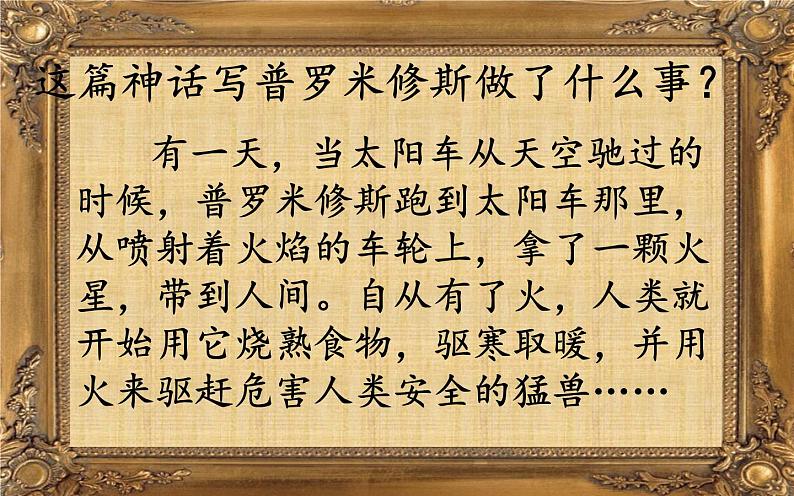 这篇神话写普罗米修斯做了什么事？
有一天，当太阳车从天空驰过的
时候，普罗米修斯跑到太阳车那里，
从喷射着火焰的车轮上，拿了一颗火
星，带到人间。自从有了火，人类就
开始用它烧熟食物，驱寒取暖，并用
火来驱赶危害人类安全的猛兽……